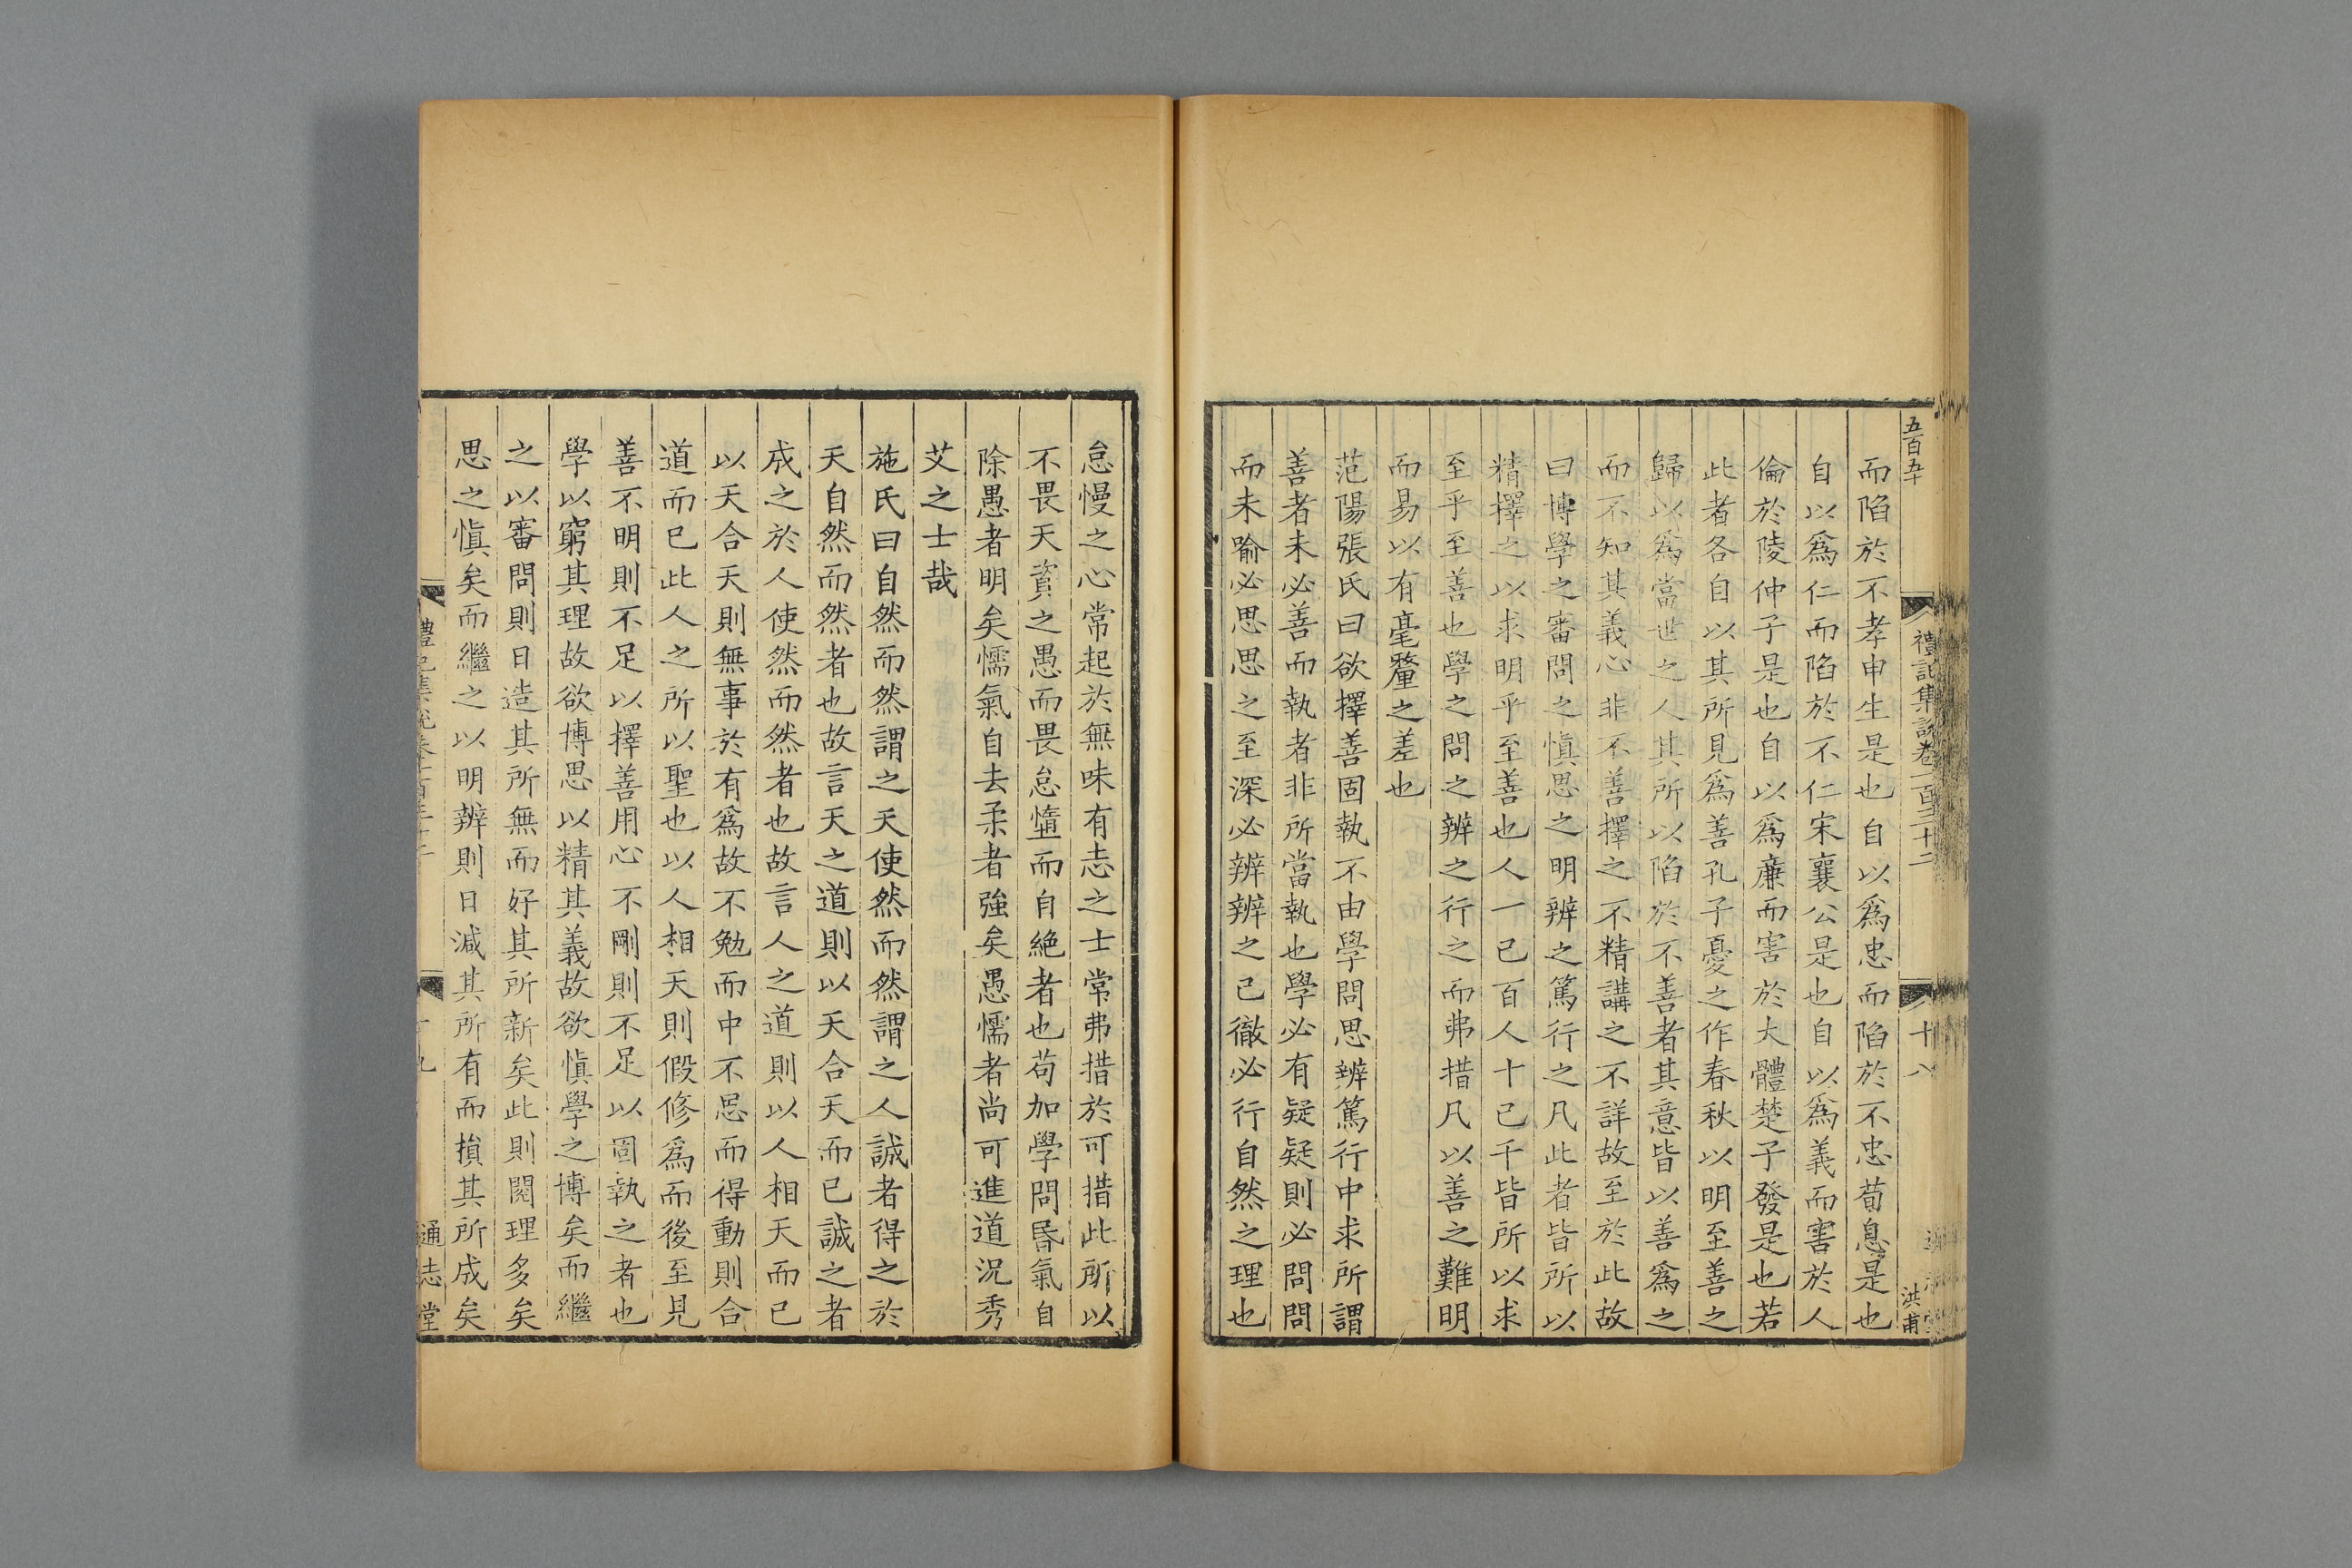 五百五十
禮記集說卷一百三十二
十八
洪甫
而陷於不孝申生是也自以爲忠而陷於不忠荀息是也
自以爲仁而陷於不仁宋襄公是也自以爲義而害於人
倫於陵仲子是也自以爲廉而害於大體楚子發是也若
此者各自以其所見爲善孔子憂之作春秋以明至善之
歸以爲當世之人其所以陷於不善者其意皆以善爲之
而不知其義心非不善擇之不精講之不詳故至於此故
曰博學之審問之愼思之明辨之篤行之凡此者皆所以
精擇之以求明乎至善也人一己百人十己千皆所以求
至乎至善也學之問之辨之行之而弗措凡以善之難明
而易以有毫釐之差也
范陽張氏曰欲擇善固執不由學問思辨篤行中求所謂
善者未必善而執者非所當執也學必有疑疑則必問問
而未喻必思思之至深必辨辨之已徹必行自然之理也
怠慢之心常起於無味有志之士常弗措於可措此所以
不畏天資之愚而畏怠惰而自絕者也苟加學問昬氣自
除愚者明矣懦氣自去柔者強矣愚懦者尚可進道況秀
艾之士哉
施氏曰自然而然謂之天使然而然謂之人誠者得之於
天自然而然者也故言天之道則以天合天而已誠之者
成之於人使然而然者也故言人之道則以人相天而已
以天合天則無事於有爲故不勉而中不思而得動則合
道而已此人之所以聖也以人相天則假修爲而後至見
善不明則不足以擇善用心不剛則不足以固執之者也
學以窮其理故欲博思以精其義故欲愼學之博矣而繼
之以審問則日造其所無而好其所新矣此則閱理多矣
思之愼矣而繼之以明辨則日減其所有而損其所成矣
禮記集說卷
十九
通志堂